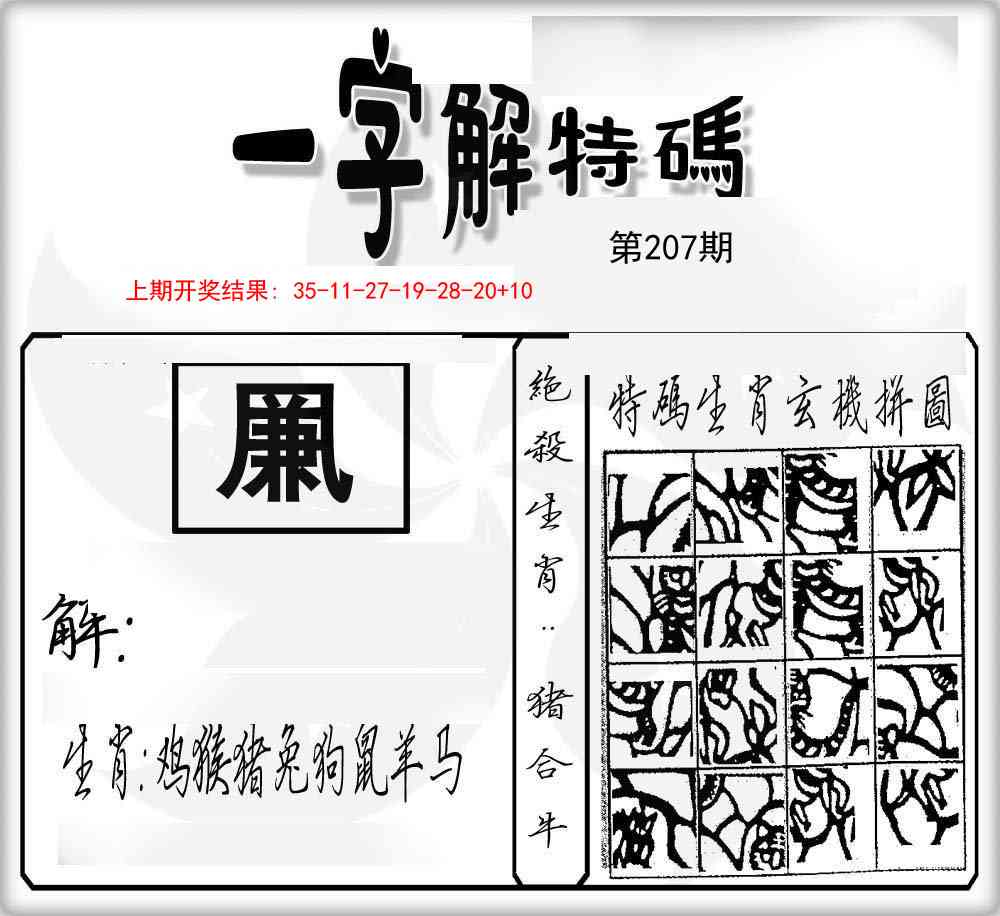 一字解特碼
第207期
上期开奖结果: 35-11-27-19-28-20+10
解:
生肖:鸡猴猪兔狗鼠羊马
絶殺生肖:猪合牛
特碼生肖玄機拼圖